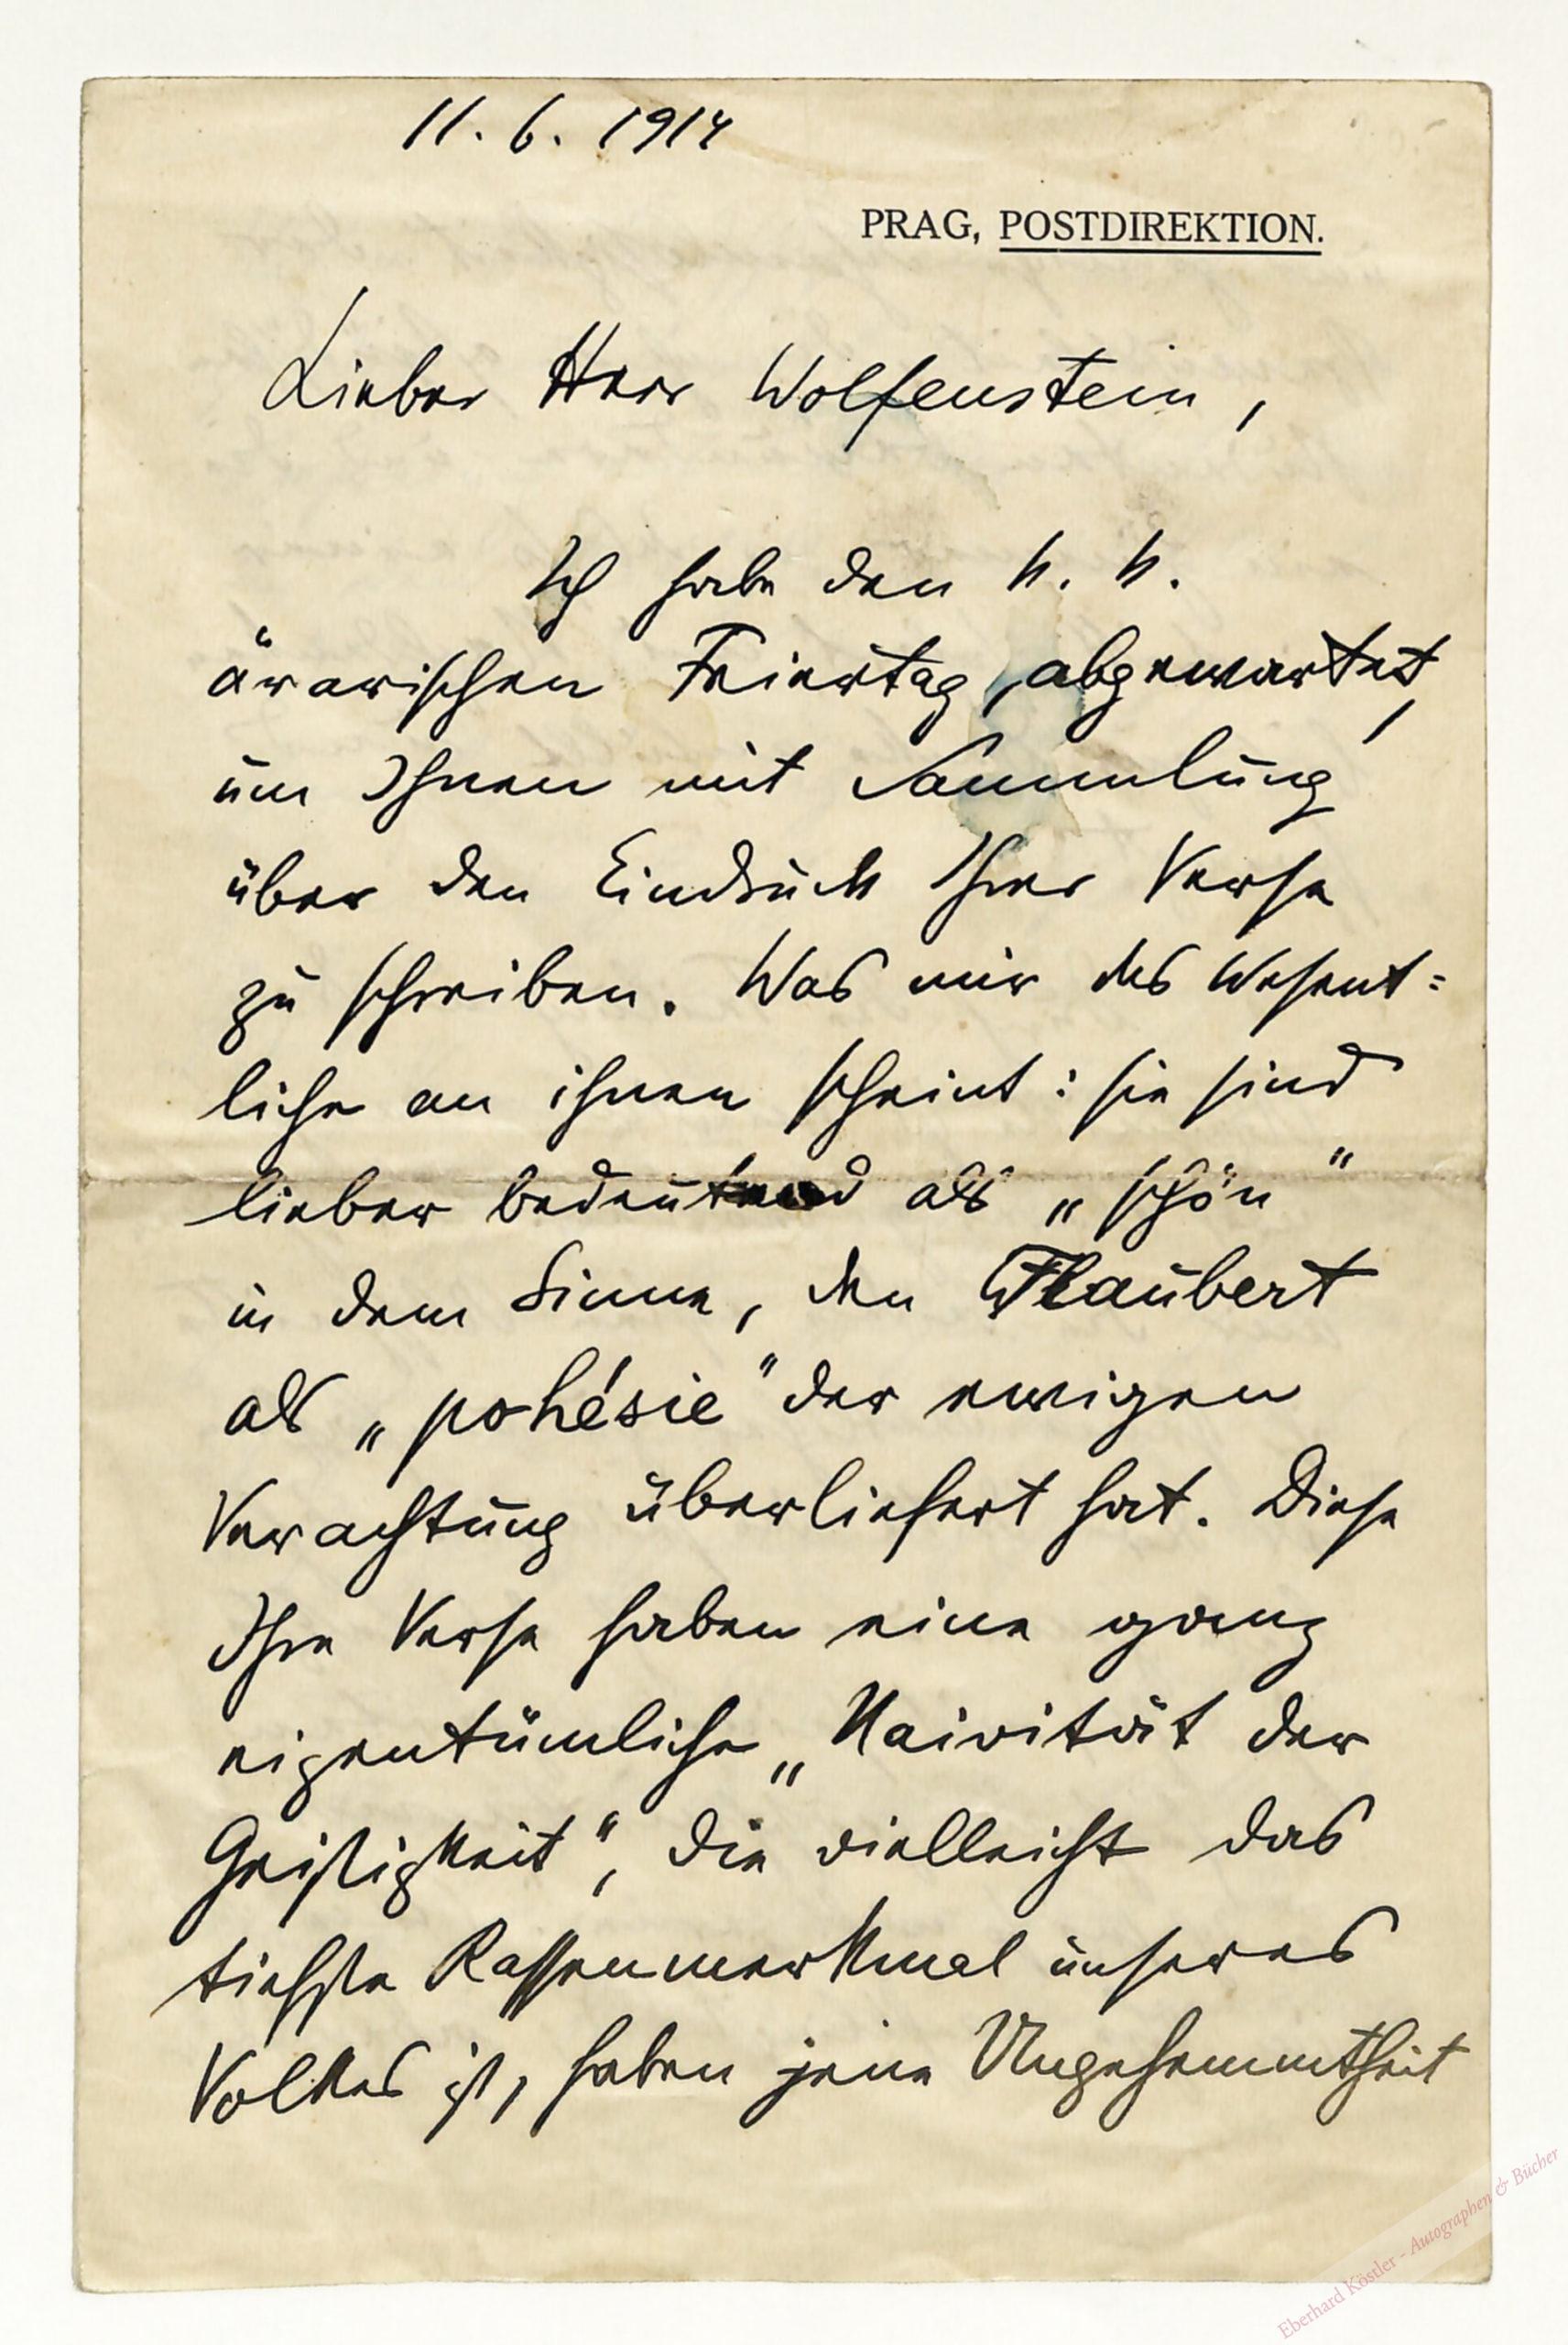 11. 6. 1914
PRAG, POSTDIREKTION.
Lieber Herr Wolfenstein,
Ich habe den k. k.
ärarischen Feiertag abgewartet,
um Ihnen mit Sammlung
über den Eindruck Ihrer Verse
zu schreiben. Was mir das Wesent=
liche an ihnen scheint: sie sind
lieber bedeutend als „schön"
in dem Sinne, den Flaubert
als „pohésie" der ewigen
Verachtung überliefert hat. Diese
Ihre Verse haben eine ganz
eigentümliche „Naivität der
Geistigkeit", die vielleicht das
tiefste Rassenmerkmal unseres
Volkes ist, haben jene Ungehemmtheit
Eberhard Köstler - Autographen & Bücher